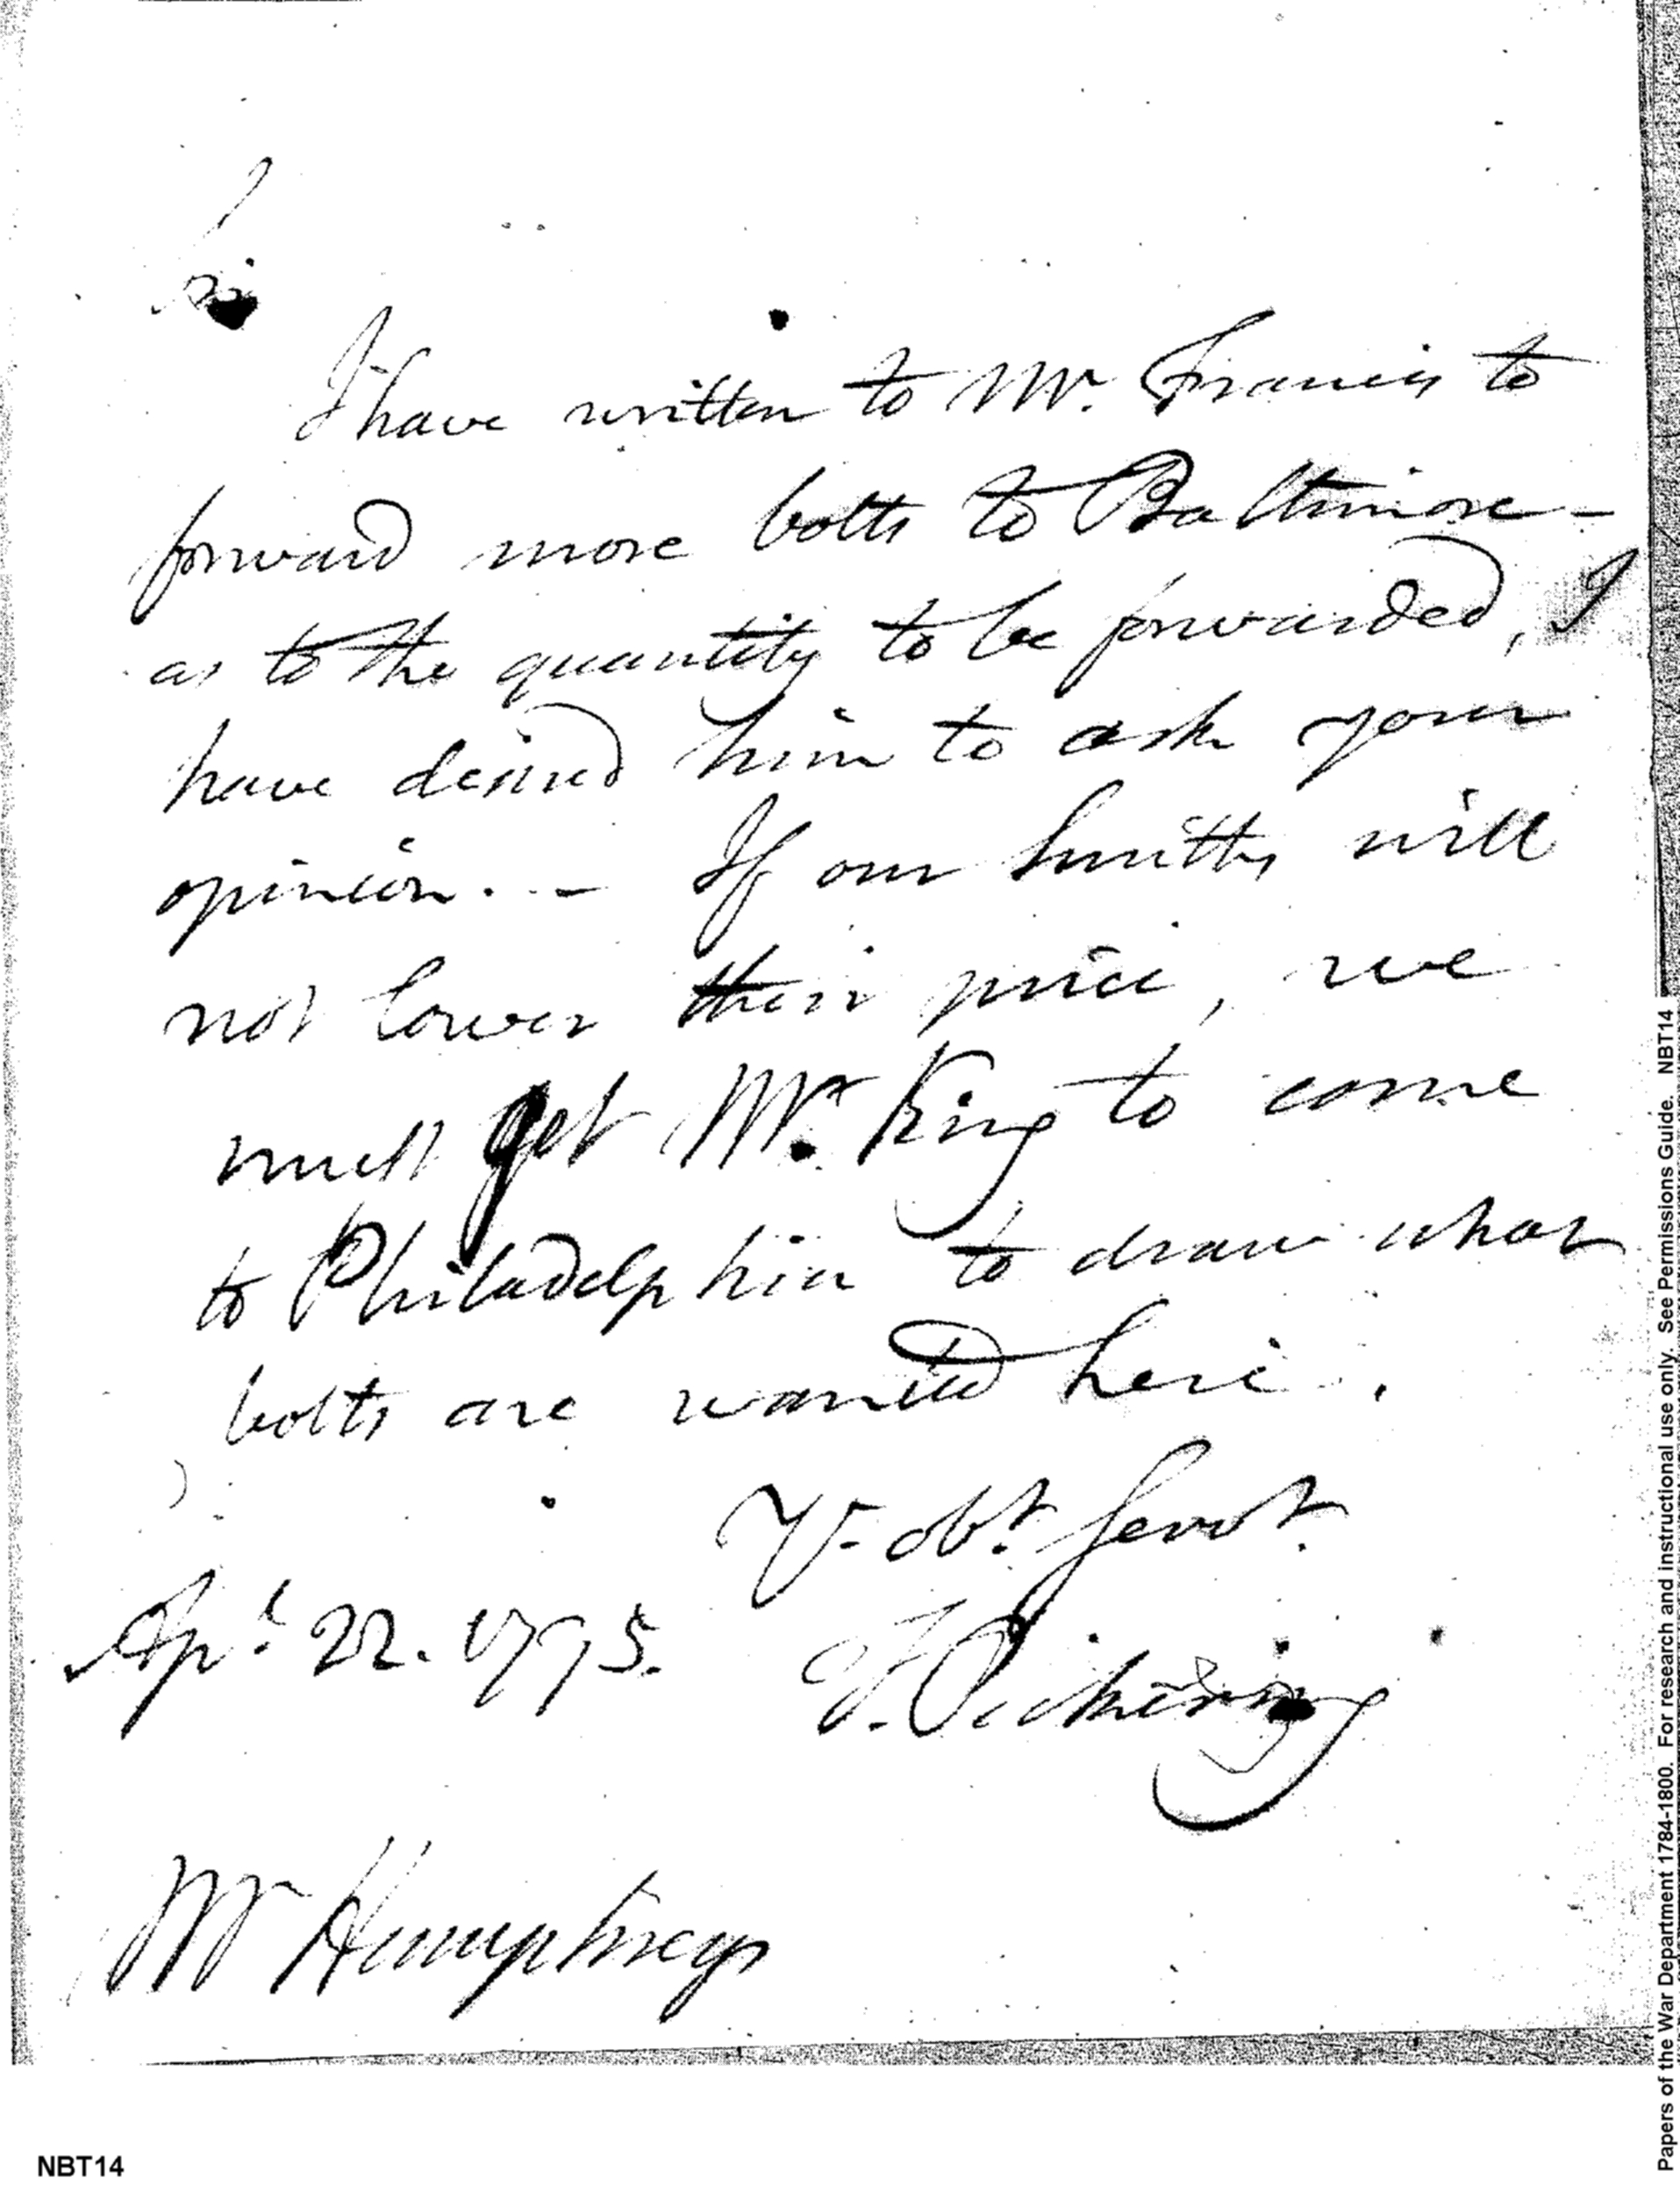 Sir
I have written to Mr. Francis to
forward more bolts to Baltimore -
as to the quantity to be forwarded, I
have desired him to ask your
opinion. - If our Smiths will
not lower their price, we
must get Mr. King to come
to Philadelphia to draw what
bolts are wanted here.
Yr. obt. Servt.
Apl. 22. 1795. T. Pickering
Mr Humphreys
NBT14
Papers of the War Department 1784-1800. For research and instructional use only. See Permissions Guide. NBT14